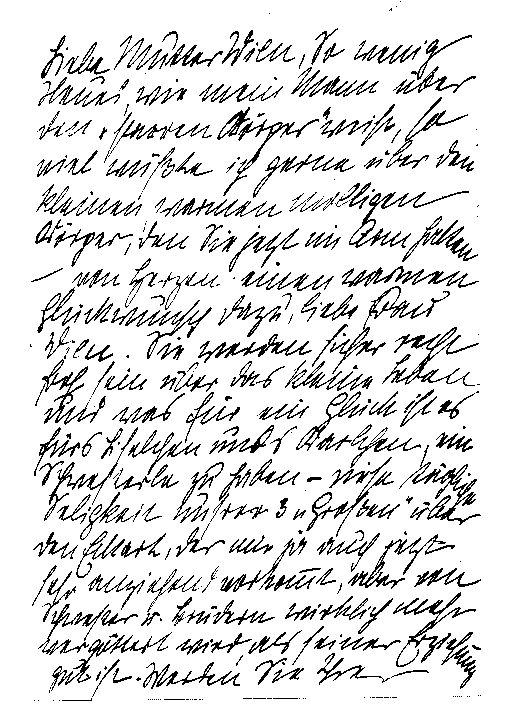 Liebe Mutter Wien, So wenig
Neues, wie mein Mann über
den „starren Körper" weiß, so
viel wüßte ich gerne über den
kleinen warmen molligen
Körper, den Sie jetzt im Arm halten
– von Herzen einen warmen
Glückwunsch dazu, liebe Frau
Wien. Sie werden sicher recht
froh sein über das kleine Leben
und was für ein Glück ist es
fürs und's Karlchen, ein
Schwesterle zu haben – diese tägliche
Seligkeit unsrer 3 „Großen" über
den Eckart, der mir ja auch jetzt
sehr anziehend vorkommt, aber von
Schwester u. Brüdern wirklich mehr
vergöttert wird, als seiner Erziehung
gut ist. Werden Sie Ihre